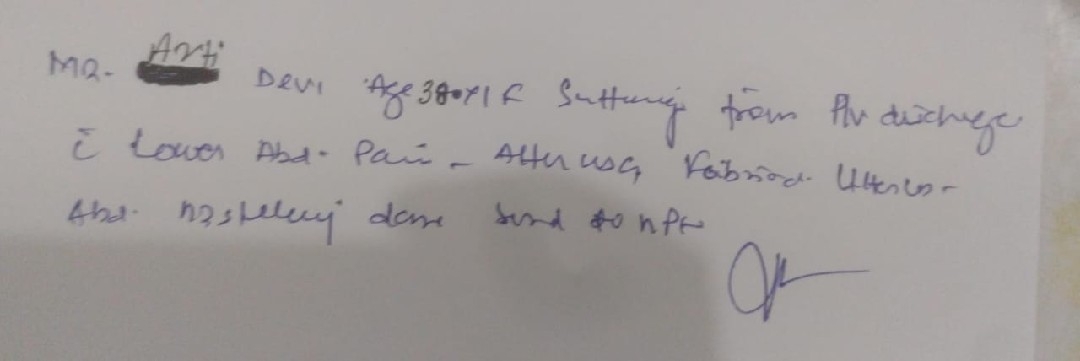 MR. Arti Devi Age 38 Y/F Suffering from PV discharge
c̄ Lower Abd. Pain - After USG Fabriod Uterus -
Abd. hysteleny done send to HPE